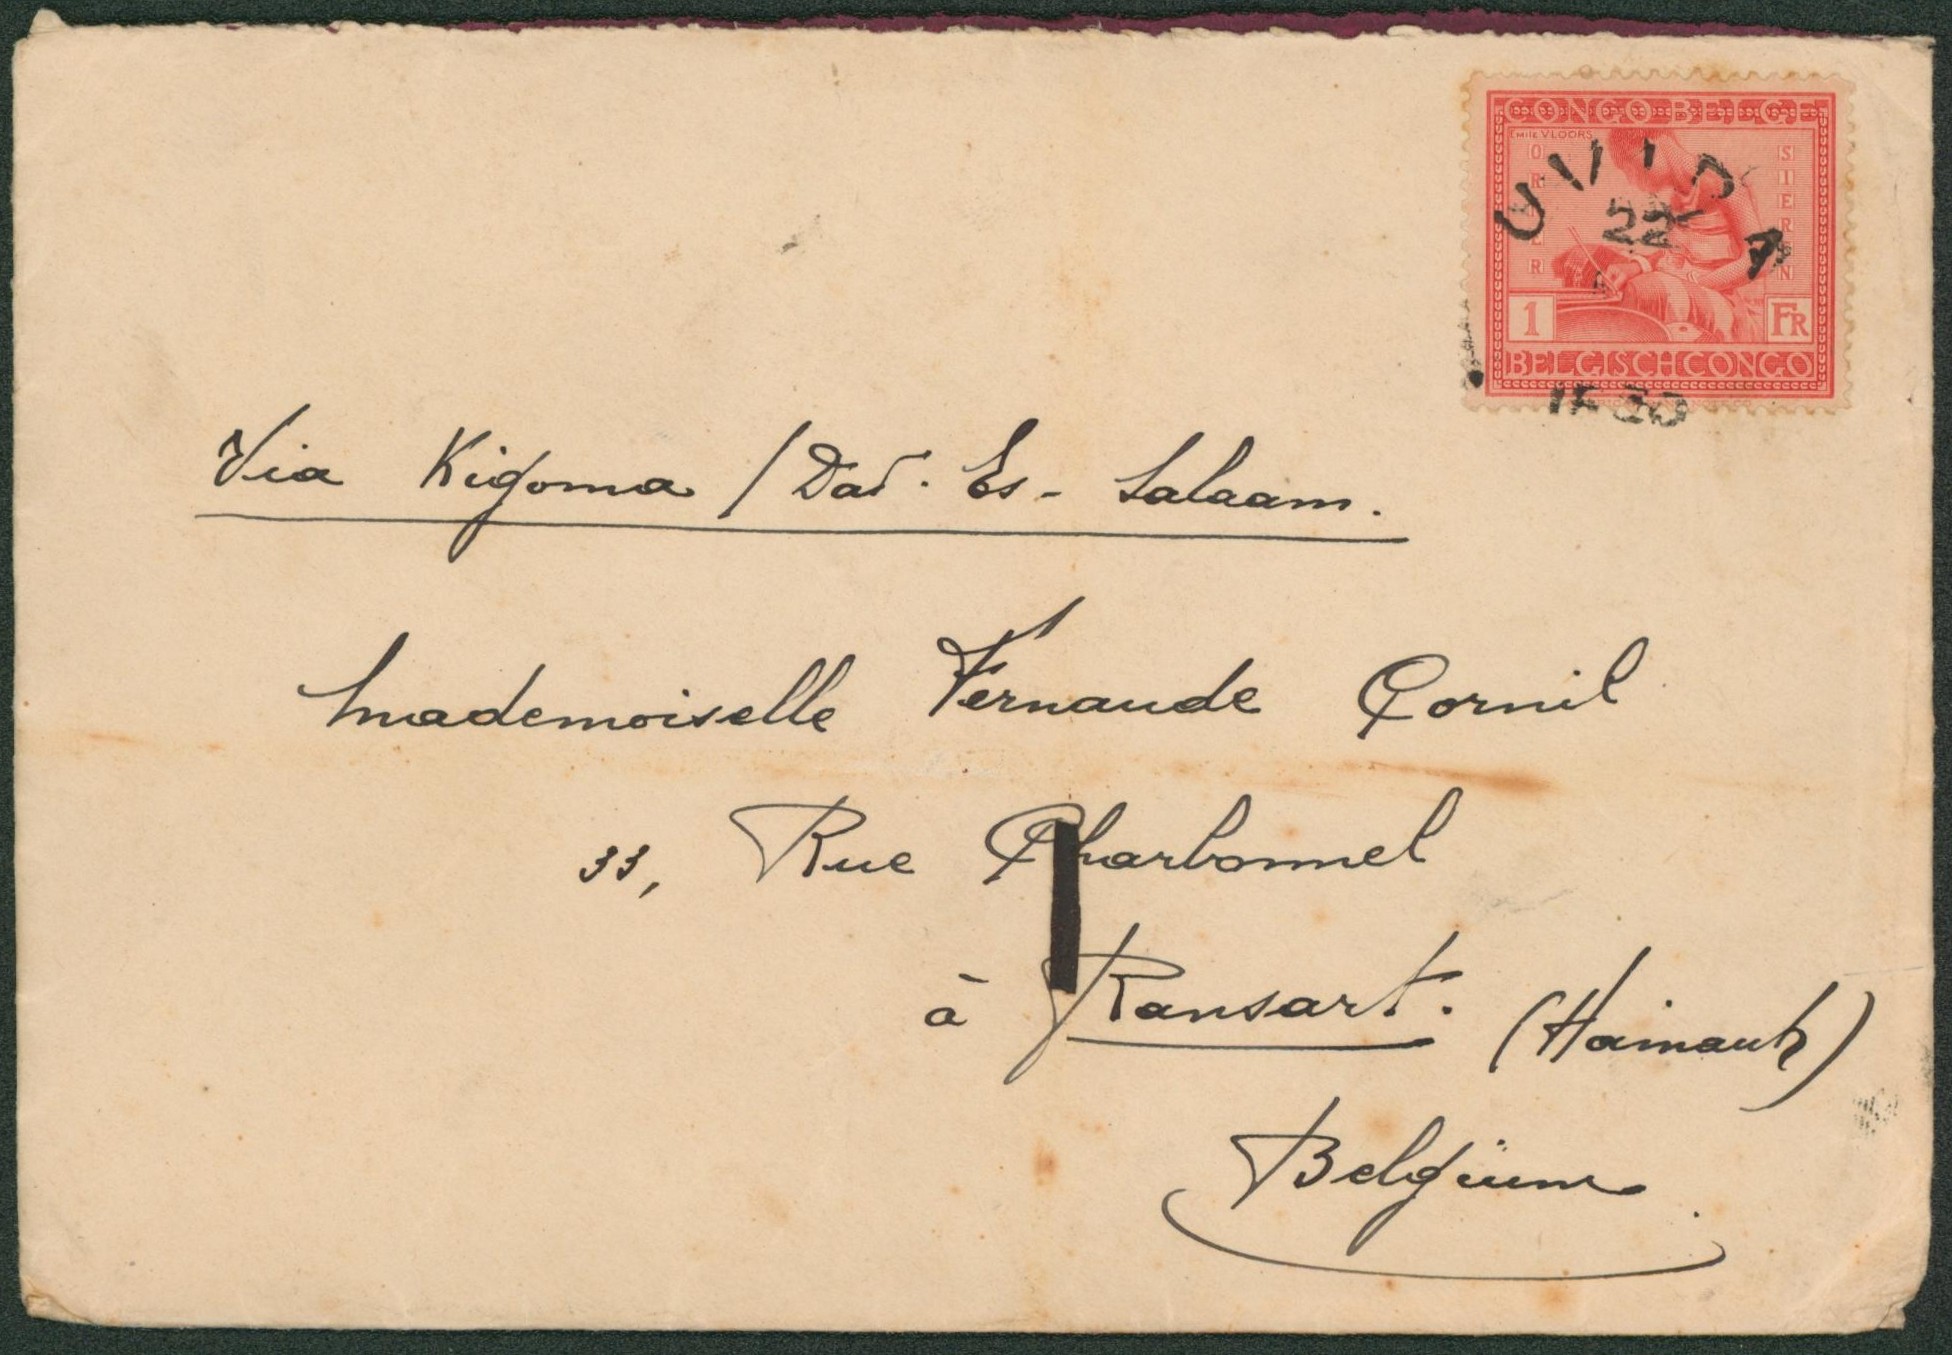 CONGO BELGE
EMILE VLOORS
ORNER
SIEREN
UVIRA
22
1 FR
BELGISCH CONGO
Via Kigoma / Dar. Es - Salaam.
Mademoiselle Fernande Cornil
33, Rue Charbonnel
à Ransart. (Hainaut)
Belgium